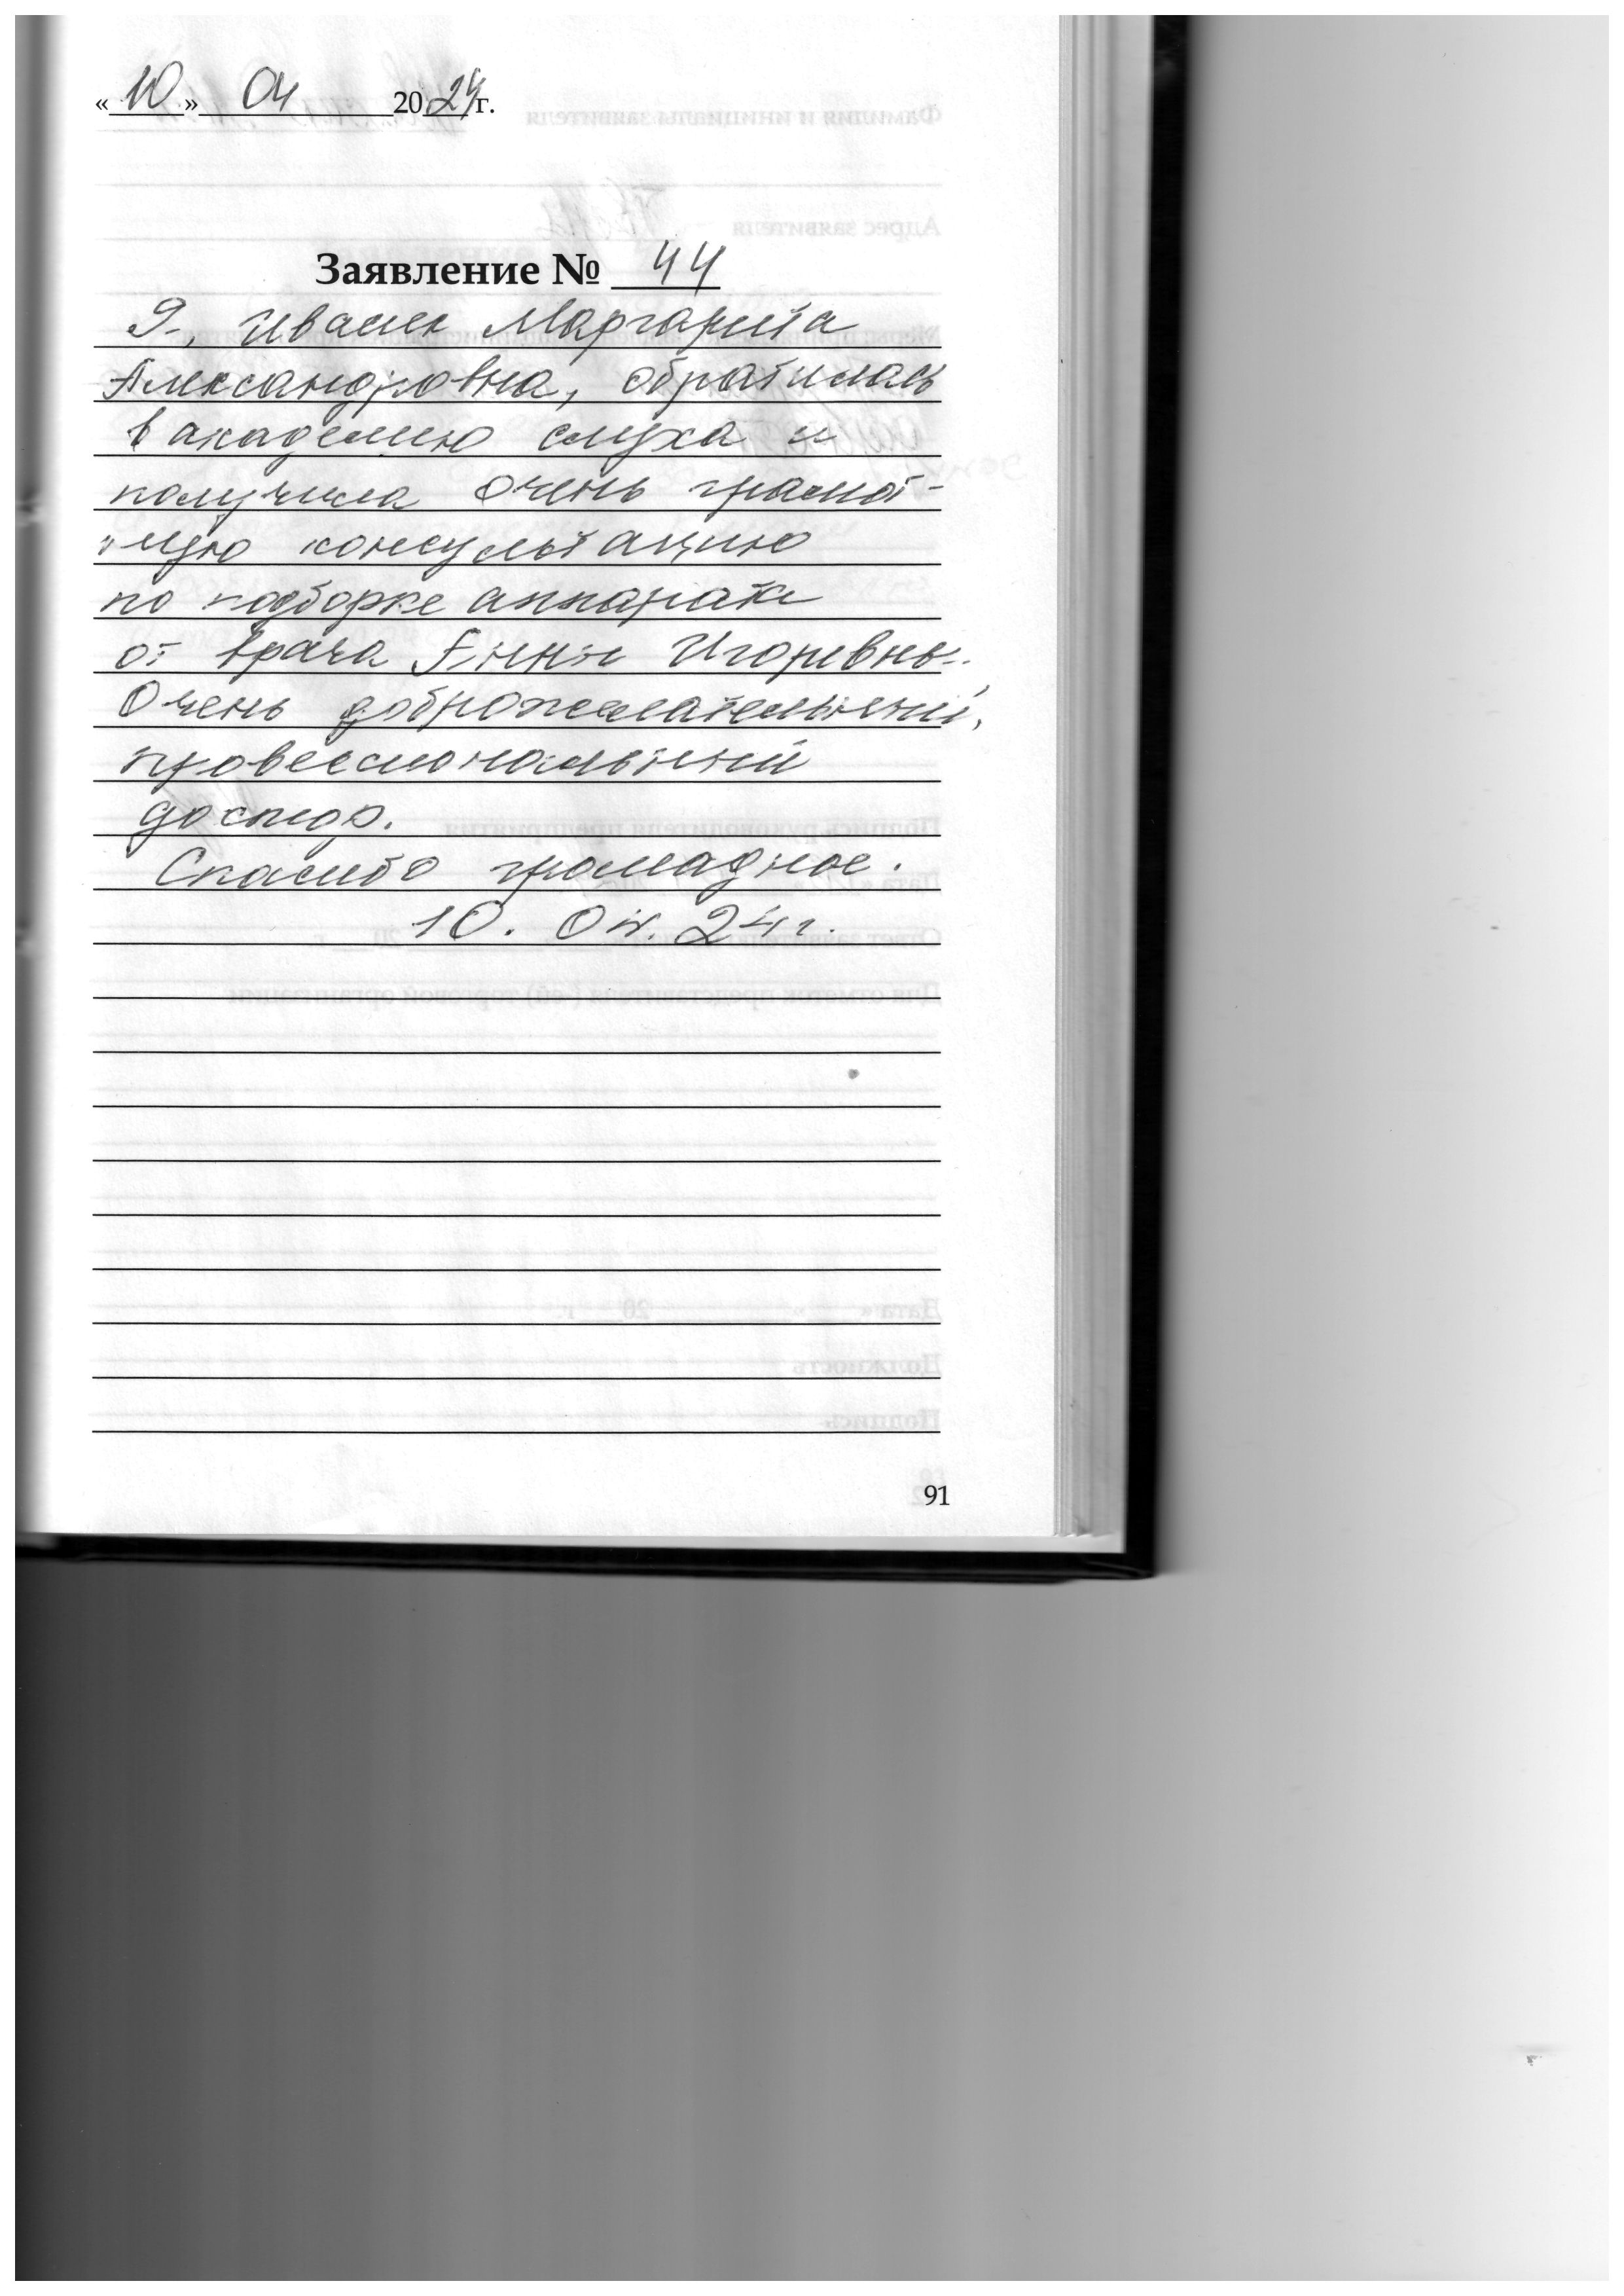 «10» 04 2024г.
Заявление № 44
Я, Ивасек Маргарита
Александровна, обратилась
в академию слуха и
получила очень грамот-
ную консультацию
по подборке аппарата
от врача Игоревны.
Очень доброжелательный,
провессиональный
доктор.
Спасибо громадное.
10. 04. 24 г.
91